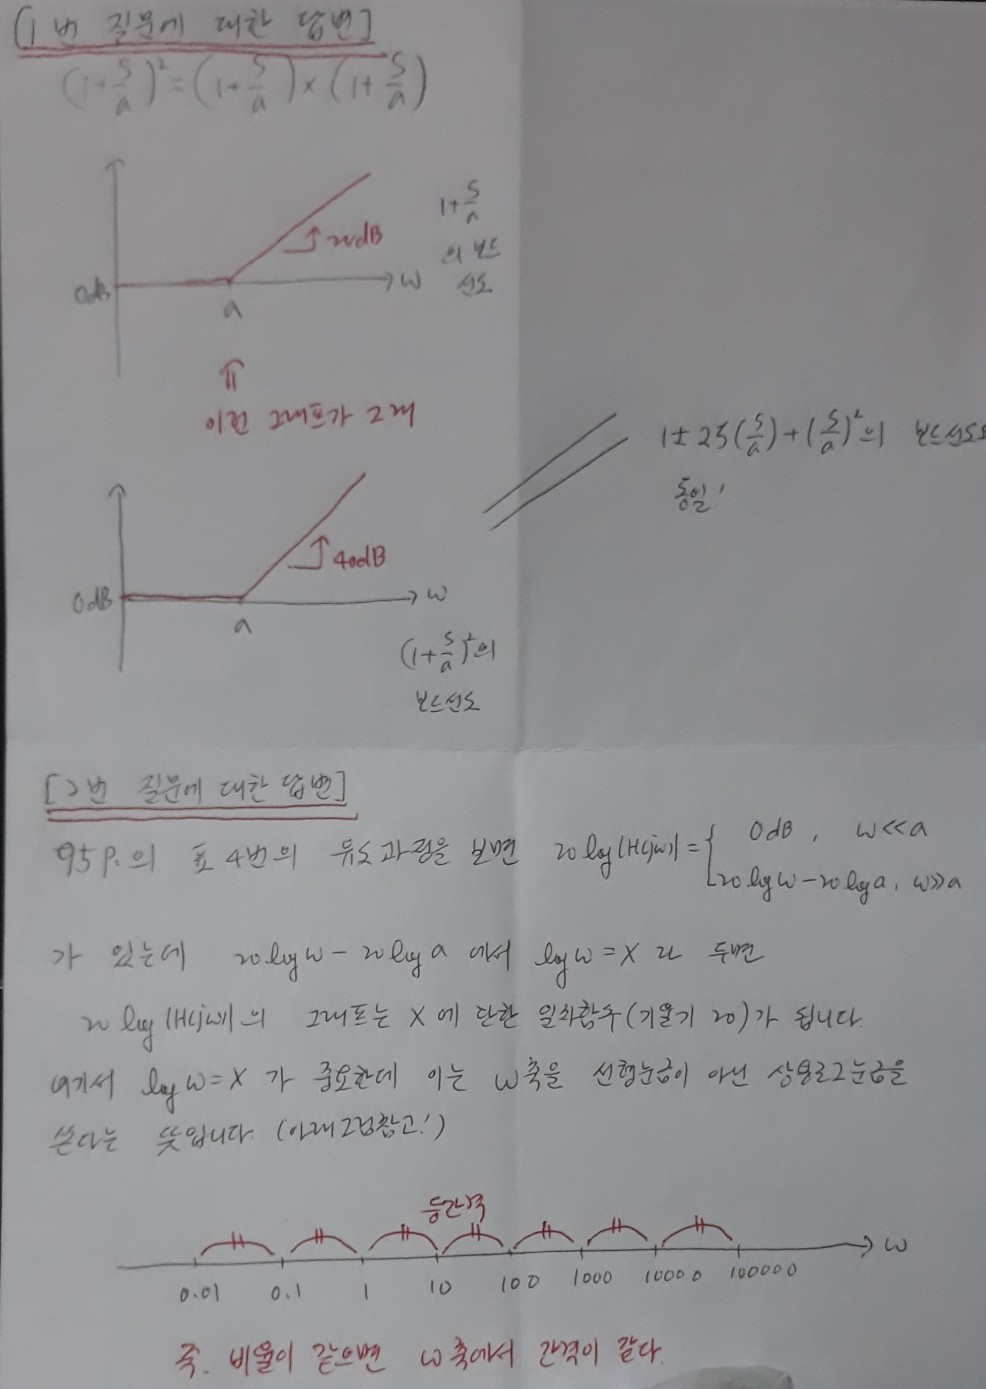 [1번 질문에 대한 답변]
(1+s/a)²=(1+s/a)×(1+s/a)
20dB
0dB
a
ω
1+s/a
의 보드
선도
⇑
이런 그래프가 2개
1±2ζ(s/a)+(s/a)²의 보드선도
동일!
40dB
0dB
a
ω
(1+s/a)²의
보드선도
[2번 질문에 대한 답변]
95p.의 표 4번의 유도과정을 보면 20log|H(jω)|={ 0dB, ω≪a
20logω-20loga, ω≫a
가 있는데 20logω-20loga 에서 logω=X 라 두면
20log|H(jω)|의 그래프는 X에 단한 일차함수(기울기 20)가 됩니다.
여기서 logω=X 가 중요한데 이는 ω축을 선형눈금이 아닌 상용로그눈금을
쓴다는 뜻입니다. (아래그림참고!)
등간격
ω
0.01 0.1 1 10 100 1000 10000 100000
즉. 비율이 같으면 ω축에서 간격이 같다.